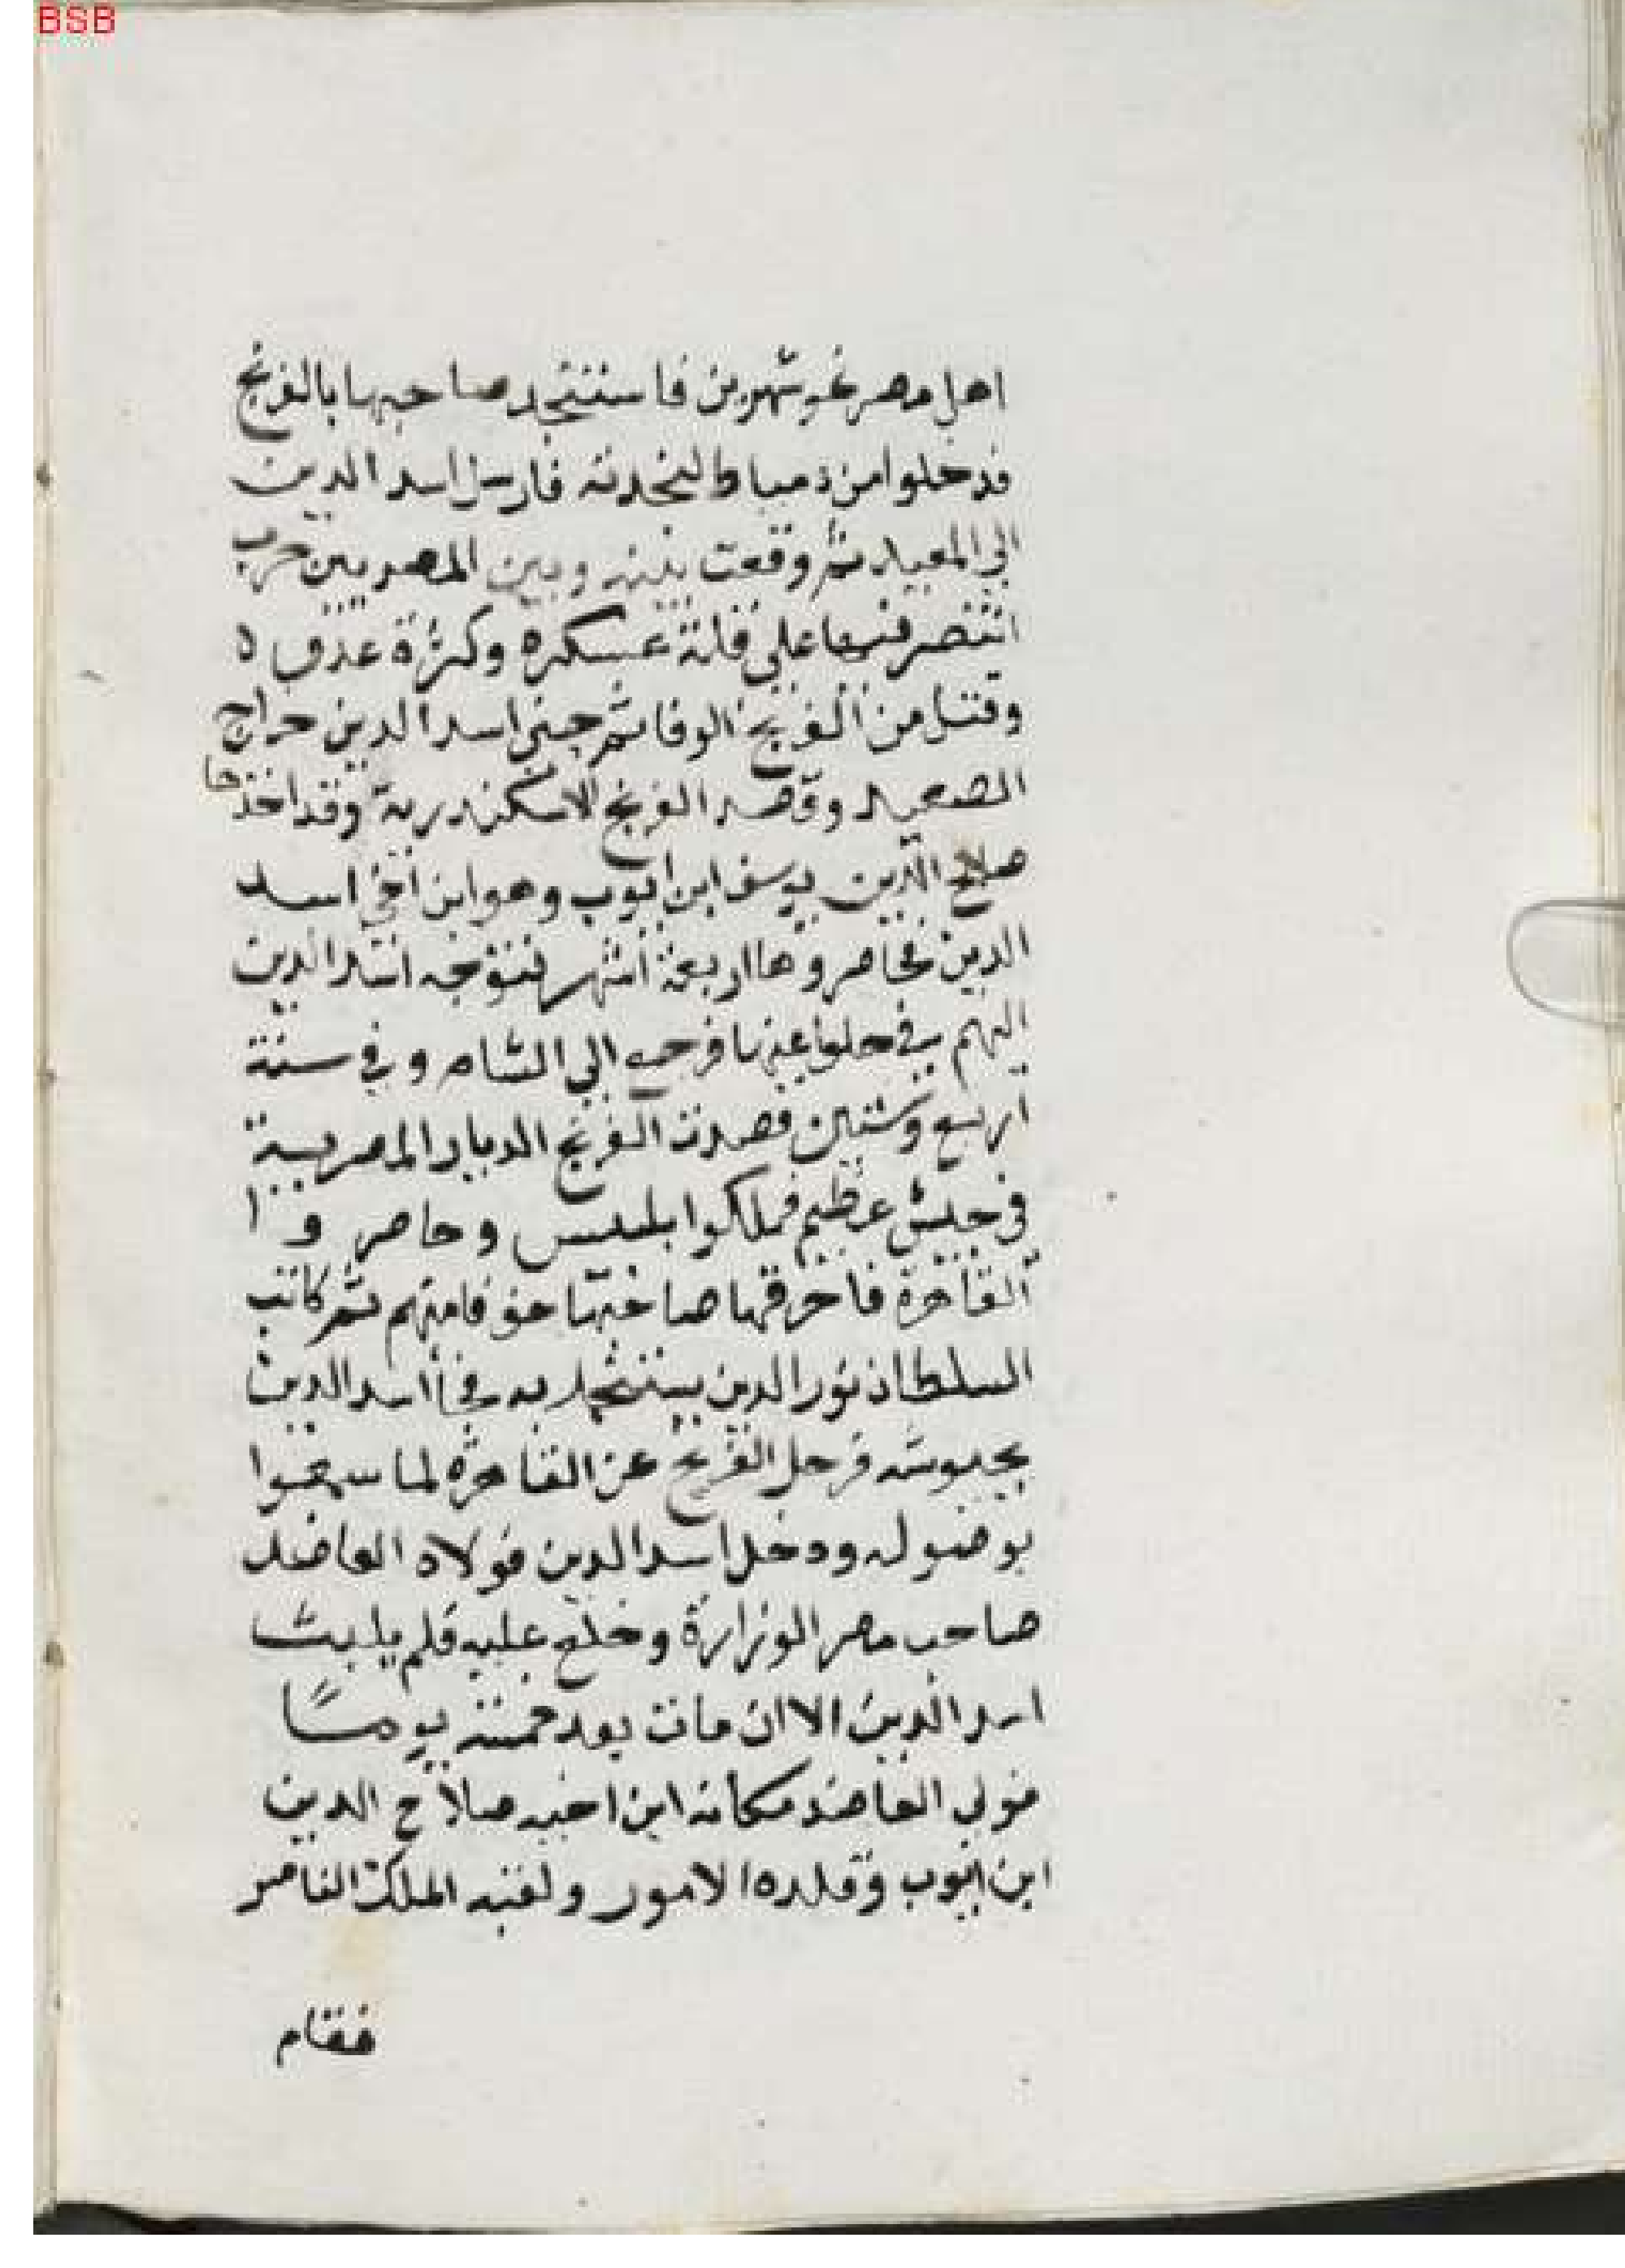 BSB
اهل مصر نحو شهرين فاستنجد صاحبها بالفرنج
فدخلوا من دمياط لنجدته فارسل اسد الدين
الى الصعيد ثم وقعت بينه وبين المصريين حرب
انتصر فيها على قلة عسكره وكثرة عدوه
وقتل من الفرنج الوفا ثم جبى اسد الدين خراج
الصعيد وقصد الفرنج الاسكندرية وقد اخذها
صلاح الدين يوسف ابن ايوب وهو ابن اخي اسد
الدين فحاصروها اربعة اشهر فتوجه اسد الدين
اليهم فرحلوا عنها فرجع الى الشام وفي سنة
اربع وستين قصدت الفرنج الديار المصرية
في جيش عظيم فملكوا بلبيس وحاصروا
القاهرة فاحرقها صاحبها خوفا منهم ثم كاتب
السلطان نور الدين يستنجد به فجا اسد الدين
بجيوشه فرحل الفرنج عن القاهرة لما سمعوا
بوصوله ودخل اسد الدين فولاه العاضد
صاحب مصر الوزارة وخلع عليه فلم يلبث
اسد الدين الا ان مات بعد خمسة يومًا
فولى العاضد مكانه ابن اخيه صلاح الدين
ابن ايوب وقلده الامور ولقبه الملك الناصر
فقام